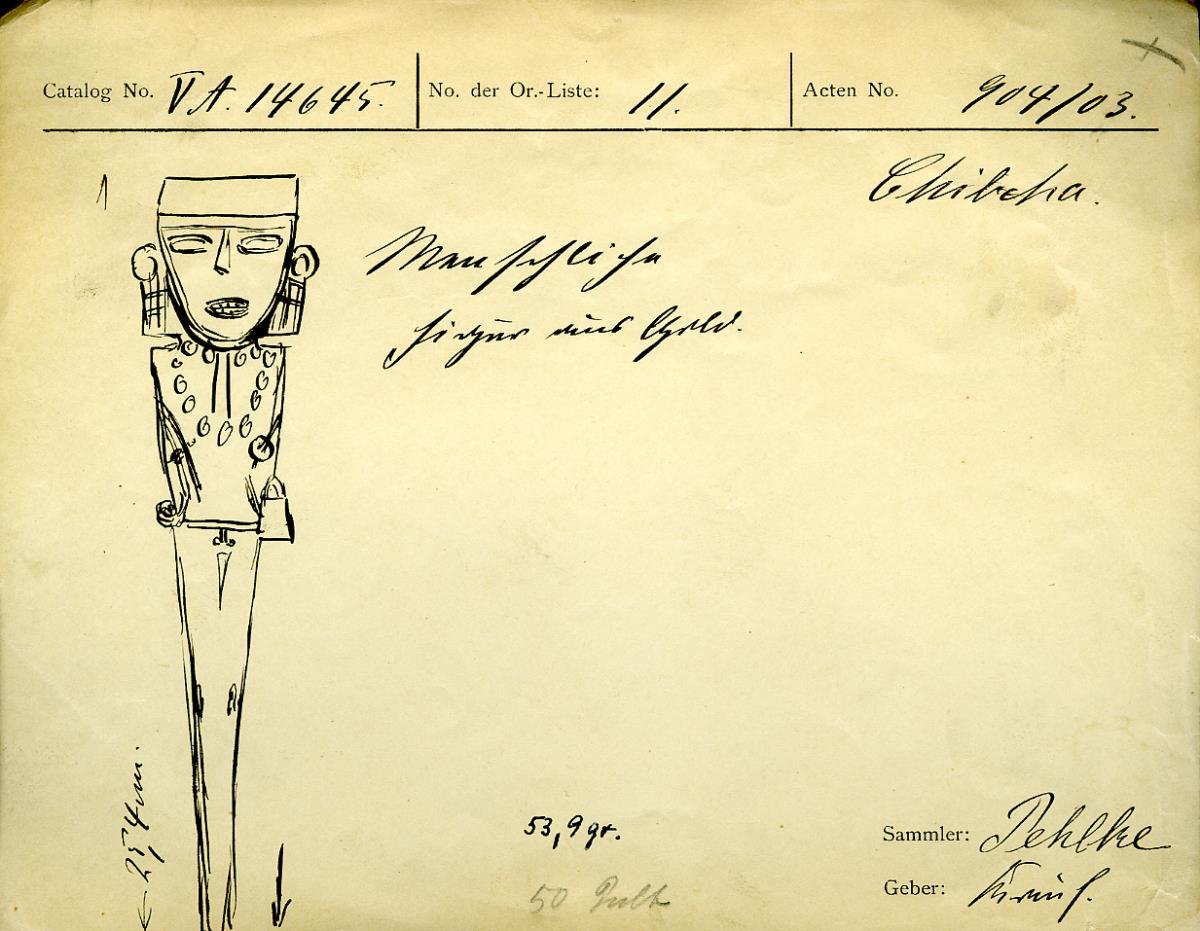 Catalog No. V A. 14645. No. der Or.-Liste: 11. Acten No. 904/03.
Chibcha.
Menschliche
Figur aus Gold.
25,4 cm.
53,9 gr.
Sammler: Pehlke
50 Pult
Geber: Kauf.